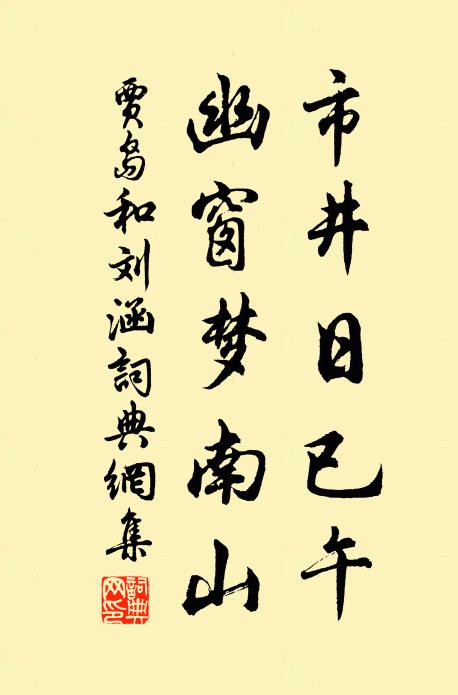 市井日已午
幽窗梦南山
賈島和刘涵詞典網集
詞典網印